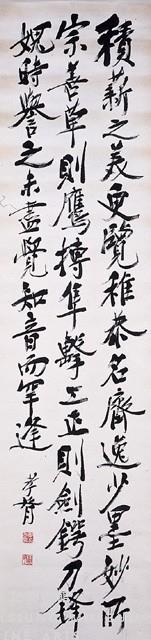 積薪之美更覽稚恭名齊逸少墨妙所
宗善草則鷹摶隼擊工正則劍鍔刀鋒
媿時譽之未盡覺知音而罕逢